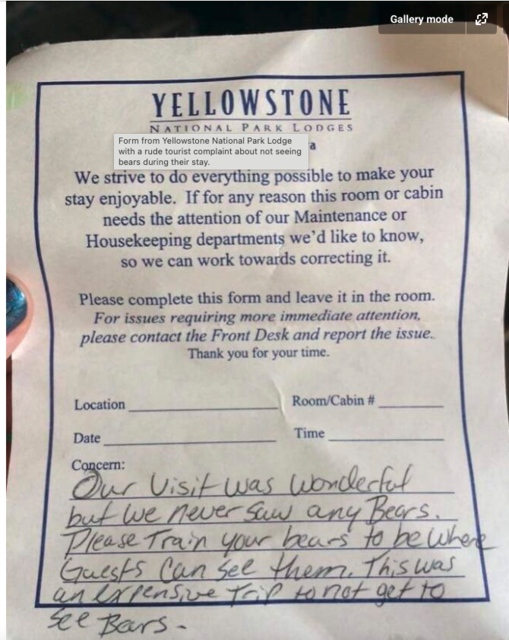 Gallery mode
YELLOWSTONE
NATIONAL PARK LODGES
Form from Yellowstone National Park Lodge
with a rude tourist complaint about not seeing
bears during their stay.
a
We strive to do everything possible to make your
stay enjoyable. If for any reason this room or cabin
needs the attention of our Maintenance or
Housekeeping departments we'd like to know,
so we can work towards correcting it.
Please complete this form and leave it in the room.
For issues requiring more immediate attention,
please contact the Front Desk and report the issue.
Thank you for your time.
Location Room/Cabin #
Date Time
Concern:
Our Visit was Wonderful
but we never Saw any Bears.
Please Train your bears to be Where
Guests Can See them. This was
an expensive Trip to not get to
See Bars.